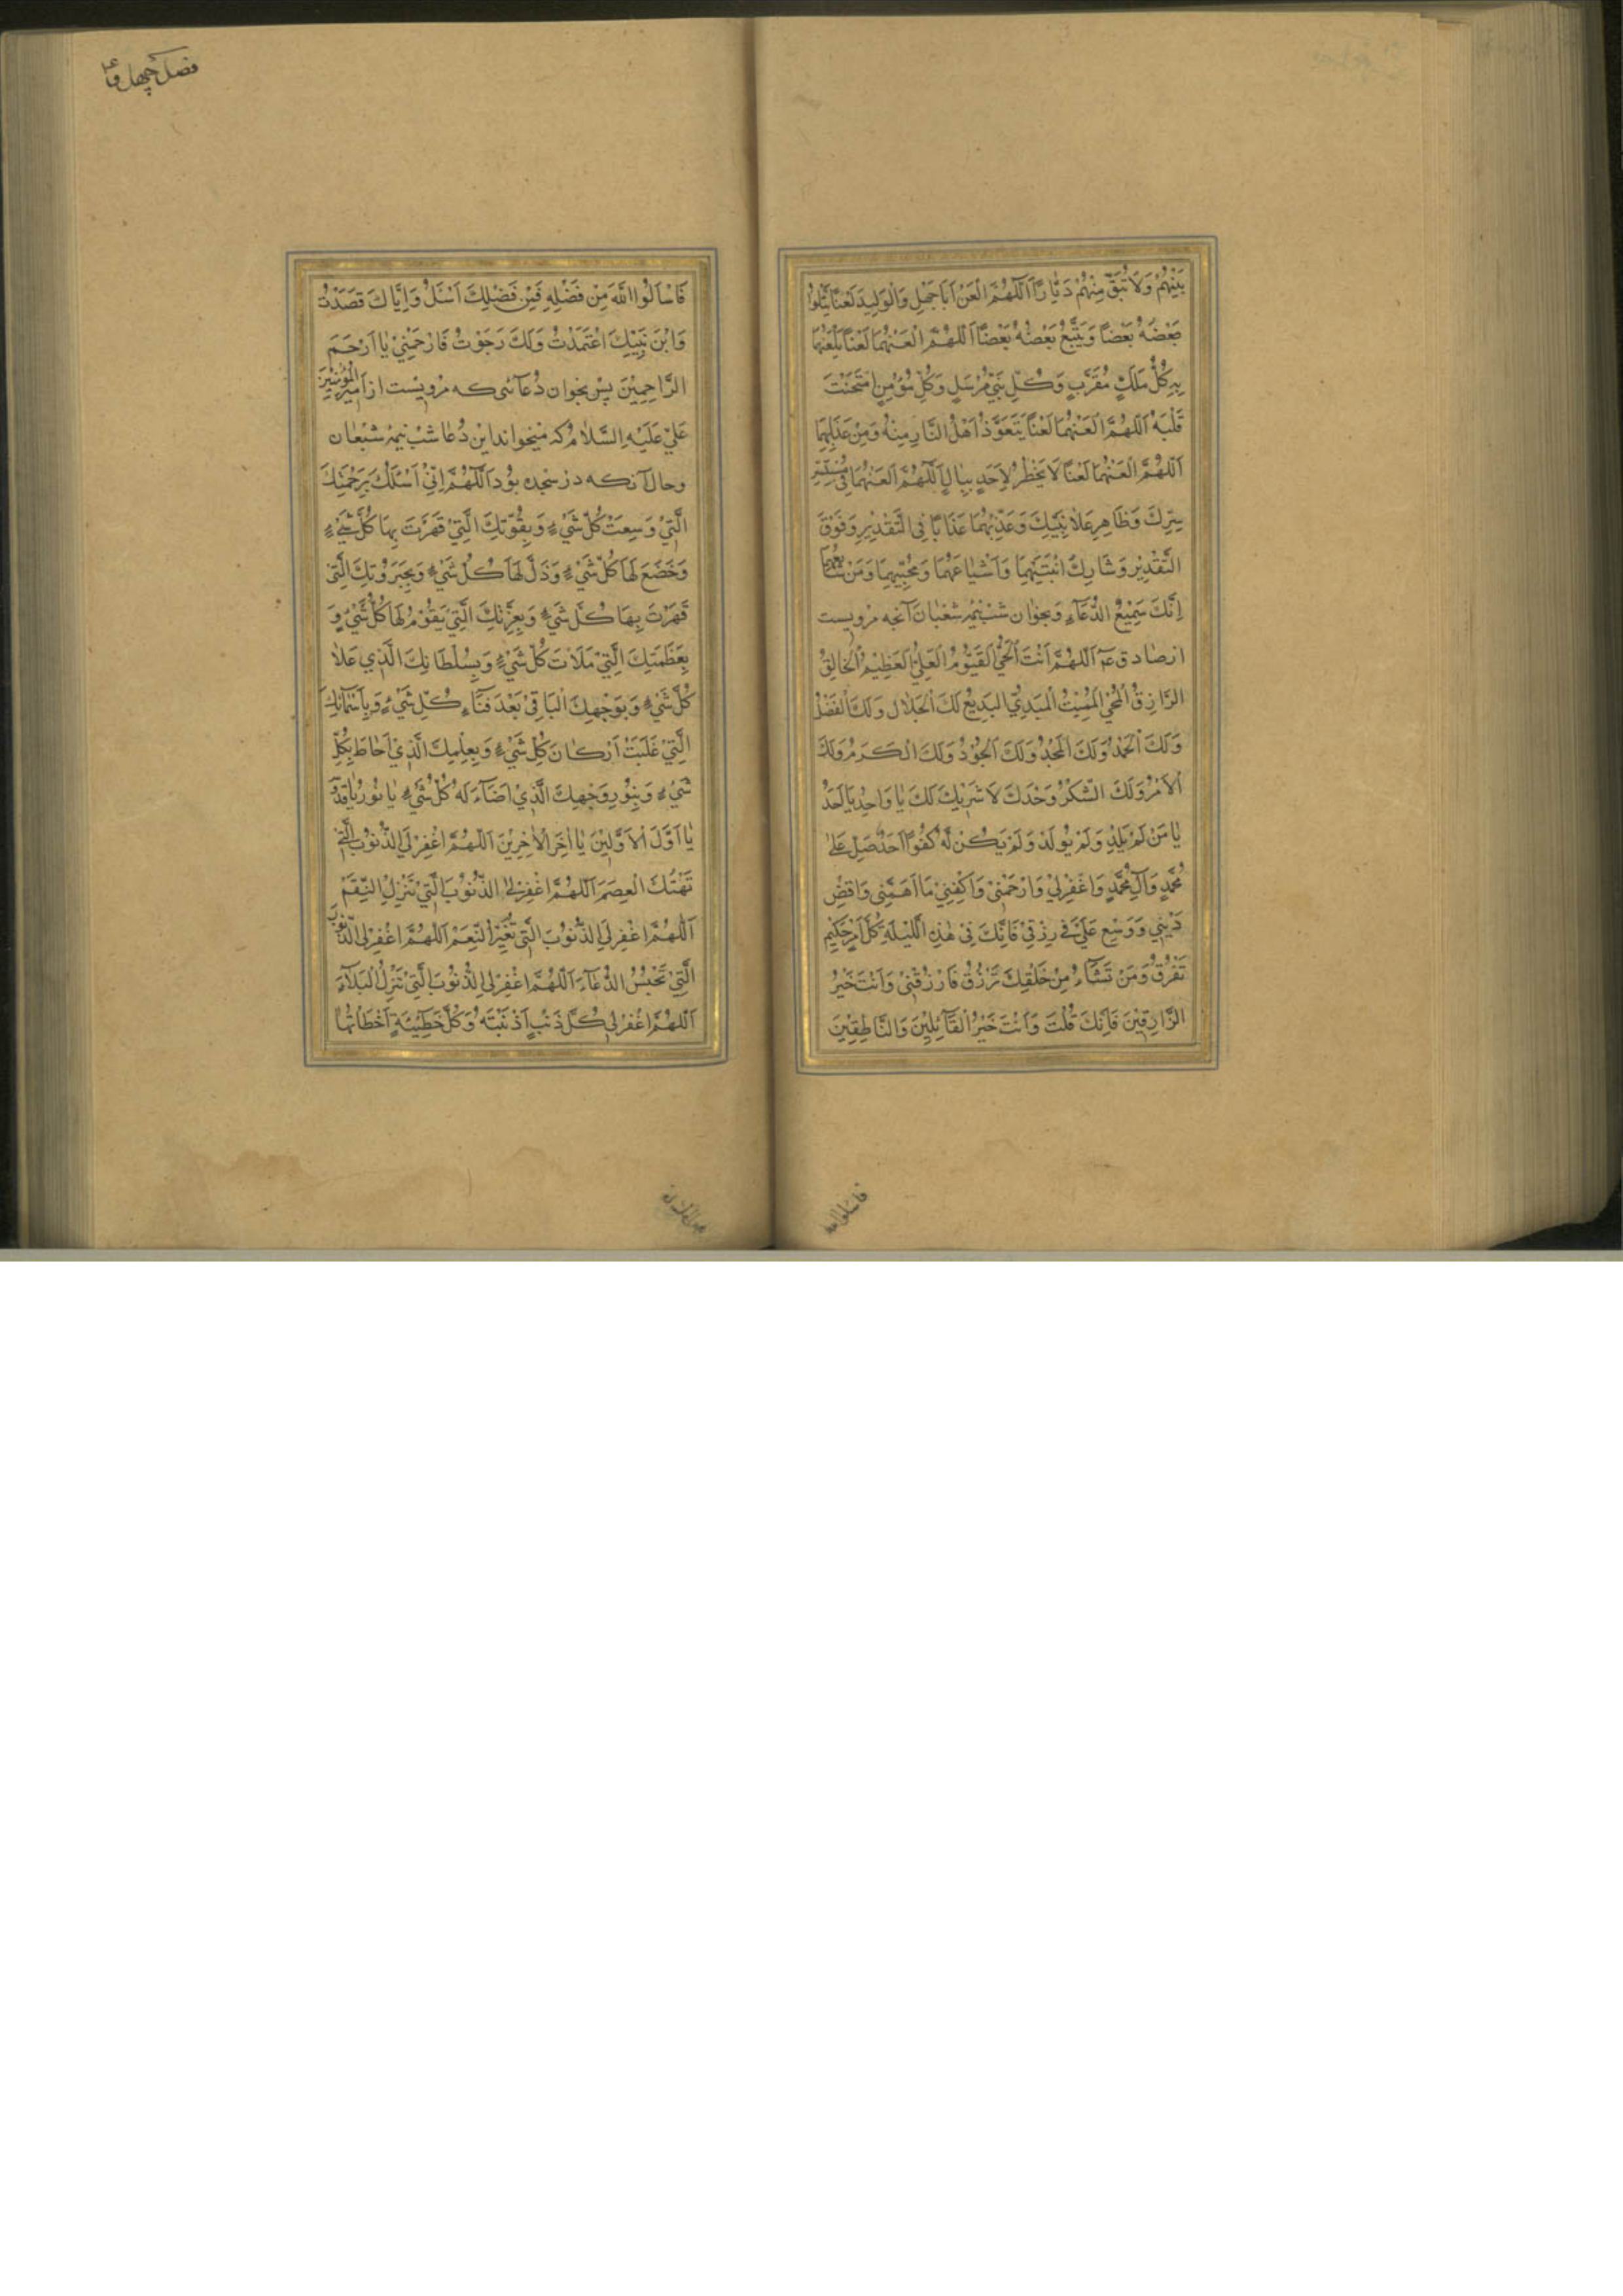 بَيْنَهُمْ وَلَا تُبْقِ مِنْهُمْ دَيَّارًا اَللّٰهُمَّ الْعَنْ اَبَا جَهْلٍ وَالْوَلِيدَ لَعْنًا يَتْلُوا
بَعْضُهُ بَعْضًا وَيَتَّبِعُ بَعْضُهُ بَعْضًا اَللّٰهُمَّ الْعَنْهُمَا لَعْنًا يَلْعَنُهُمَا
بِهِ كُلُّ مَلَكٍ مُقَرَّبٍ وَكُلُّ نَبِيٍّ مُرْسَلٍ وَكُلُّ مُؤْمِنٍ امْتَحَنْتَ
قَلْبَهُ اَللّٰهُمَّ الْعَنْهُمَا لَعْنًا يَتَعَوَّذُ اَهْلُ النَّارِ مِنْهُ وَمِنْ عَذَابِهِمَا
اَللّٰهُمَّ الْعَنْهُمَا لَعْنًا لَا يَخْطُرُ لِاَحَدٍ بِبَالٍ اَللّٰهُمَّ الْعَنْهُمَا فِي مُسْتَسِرِّ
سِرِّكَ وَظَاهِرِ عَلَانِيَتِكَ وَعَذِّبْهُمَا عَذَابًا فِي التَّقْدِيرِ وَفَوْقَ
التَّقْدِيْرِ وَشَارِكْ ابْنَتَيْهِمَا وَاَشْيَاعَهُمَا وَمُحِبِّيهِمَا وَمَنْ شَايَعَهُمَا
اِنَّكَ سَمِيْعُ الدُّعَآءِ وَبخوان شب نيمهٔ شعبان آنچه مرويست
از صادق عم اَللّٰهُمَّ اَنْتَ الْحَيُّ الْقَيُّوْمُ الْعَلِيُّ الْعَظِيْمُ الْخَالِقُ
الرَّازِقُ الْمُحْيِي الْمُمِيْتُ الْمُبْدِئُ الْبَدِيْعُ لَكَ الْجَلَالُ وَلَكَ الْفَضْلُ
وَلَكَ الْحَمْدُ وَلَكَ الْمَجْدُ وَلَكَ الْجُوْدُ وَلَكَ الْكَرَمُ وَلَكَ
الْاَمْرُ وَلَكَ الشُّكْرُ وَحْدَكَ لَا شَرِيْكَ لَكَ يَا وَاحِدُ يَا اَحَدُ
يَا مَنْ لَمْ يَلِدْ وَلَمْ يُولَدْ وَلَمْ يَكُنْ لَهُ كُفُوًا اَحَدٌ صَلِّ عَلَى
مُحَمَّدٍ وَآلِ مُحَمَّدٍ وَاغْفِرْلِيْ وَارْحَمْنِيْ وَاكْفِنِيْ مَا اَهَمَّنِي وَاقْضِ
دَيْنِي وَوَسِّعْ عَلَيَّ فِي رِزْقِيْ فَاِنَّكَ فِيْ هٰذِهِ اللَّيْلَةِ كُلَّ اَمْرٍ حَكِيْمٍ
تَفْرُقُ وَمَنْ تَشَآءُ مِنْ خَلْقِكَ تَرْزُقُ فَارْزُقْنِيْ وَاَنْتَ خَيْرُ
الرَّازِقِيْنَ فَاِنَّكَ قُلْتَ وَاَنْتَ خَيْرُ الْقَآئِلِيْنَ وَالنَّاطِقِيْنَ
فاسئلوا الله
فصل چهل و
فَاسْاَلُوا اللّٰهَ مِنْ فَضْلِهِ فَمِنْ فَضْلِكَ اَسْئَلُ وَاِيَّاكَ قَصَدْتُ
وَابْنَ نَبِيِّكَ اعْتَمَدْتُ وَلَكَ رَجَوْتُ فَارْحَمْنِيْ يَا اَرْحَمَ
الرَّاحِمِيْنَ پس بخوان دُعآئى كه مرويست از اَمِيْرِ الْمُؤْمِنِيْنَ
عَلِيّ عَلَيْهِ السَّلَامُ كه ميخواند اين دُعا شب نيمهٔ شعبان
وحال آنكه در سجده بود اَللّٰهُمَّ اِنِّيْ اَسْئَلُكَ بِرَحْمَتِكَ
الَّتِيْ وَسِعَتْ كُلَّ شَيْءٍ وَبِقُوَّتِكَ الَّتِيْ قَهَرْتَ بِهَا كُلَّ شَيْءٍ
وَخَضَعَ لَهَا كُلُّ شَيْءٍ وَذَلَّ لَهَا كُلُّ شَيْءٍ وَبِجَبَرُوْتِكَ الَّتِيْ
قَهَرْتَ بِهَا كُلَّ شَيْءٍ وَبِعِزَّتِكَ الَّتِيْ يَقُوْمُ لَهَا كُلُّ شَيْءٍ وَ
بِعَظَمَتِكَ الَّتِيْ مَلَأَتْ كُلَّ شَيْءٍ وَبِسُلْطَانِكَ الَّذِي عَلَا
كُلَّ شَيْءٍ وَبِوَجْهِكَ الْبَاقِيْ بَعْدَ فَنَآءِ كُلِّ شَيْءٍ وَبِاَسْمَآئِكَ
الَّتِيْ غَلَبَتْ اَرْكَانَ كُلِّ شَيْءٍ وَبِعِلْمِكَ الَّذِيْ اَحَاطَ بِكُلِّ
شَيْءٍ وَبِنُوْرِ وَجْهِكَ الَّذِيْ اَضَآءَ لَهُ كُلُّ شَيْءٍ يَا نُوْرُ يَا قُدُّوْسُ
يَا اَوَّلَ الْاَوَّلِيْنَ يَا اٰخِرَ الْاٰخِرِيْنَ اَللّٰهُمَّ اغْفِرْ لِيَ الذُّنُوْبَ الَّتِيْ
تَهْتِكُ الْعِصَمَ اَللّٰهُمَّ اغْفِرْلِيَ الذُّنُوْبَ الَّتِيْ تُنْزِلُ النِّقَمَ
اَللّٰهُمَّ اغْفِرْ لِيَ الذُّنُوْبَ الَّتِيْ تُغَيِّرُ النِّعَمَ اَللّٰهُمَّ اغْفِرْ لِيَ الذُّنُوْبَ
الَّتِيْ تَحْبِسُ الدُّعَآءَ اَللّٰهُمَّ اغْفِرْ لِيَ الذُّنُوْبَ الَّتِيْ تُنْزِلُ الْبَلَآءَ
اَللّٰهُمَّ اغْفِرْ لِيْ كُلَّ ذَنْبٍ اَذْنَبْتُهُ وَكُلَّ خَطِيْئَةٍ اَخْطَاْتُهَا